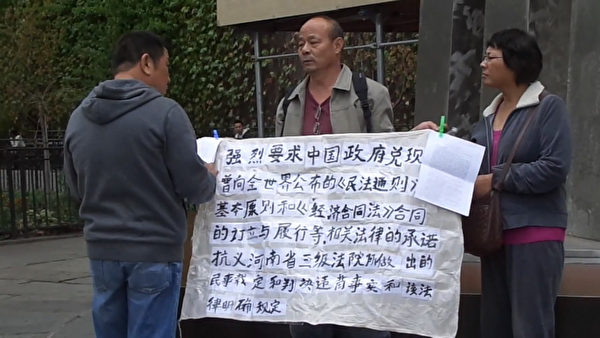 强烈要求中国政府兑现
曾向全世界公布的《民法通则》
基本原则和《经济合同法》合同
的订立与履行等，相关法律的承诺
抗义河南省三级法院所做出的
民事裁定和判决违背事实和该法
律明确规定